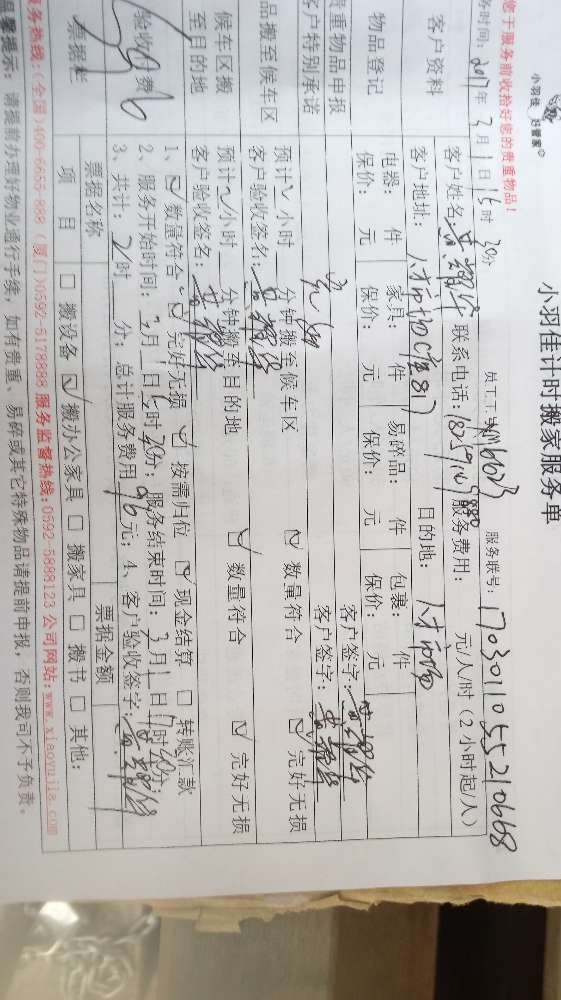 小羽佳 好管家
小羽佳计时搬家服务单
您于服务前收拾好您的贵重物品!
员工工 服务联号: 1703011055210668
务时间: 2017年3月1日15时30分
客户资料
客户姓名: 联系电话: 服务费用: 元/人/时 (2小时起/人)
客户地址: 目的地: 人才市场
物品登记
电器: 件 家具: 件 易碎品: 件 包裹: 件
保价: 元 保价: 元 保价: 元 保价: 元
贵重物品申报 客户签字:
客户特别承诺 客户签字:
品搬至候车区
预计 小时 分钟搬至候车区 ☑ 数量符合 ☑ 完好无损
客户验收签名:
候车区搬至目的地
预计 小时 分钟搬至目的地 ☑ 数量符合 ☑ 完好无损
客户验收签名:
验收 费
1、☑ 数量符合 ☑ 完好无损 ☑ 按需归位 ☑ 现金结算 □ 转账汇款
2、服务开始时间: 3月1日 时30分, 服务结束时间: 3月1日17时30分;
3、共计: 2时 分; 总计服务费用 96元; 4、客户验收签字:
票据栏
票据名称 票据金额
项目 □ 搬设备 ☑ 搬办公家具 □ 搬家具 □ 搬书 □ 其他:
服务热线: (全国)400-6655-888 (厦门)0592-5178888 服务监督热线: 0592-5888123 公司网站: www.xiaoyujia.com
温馨提示: 请提前办理好物业通行手续, 如有贵重、易碎或其它特殊物品请提前申报, 否则我司不予负责。